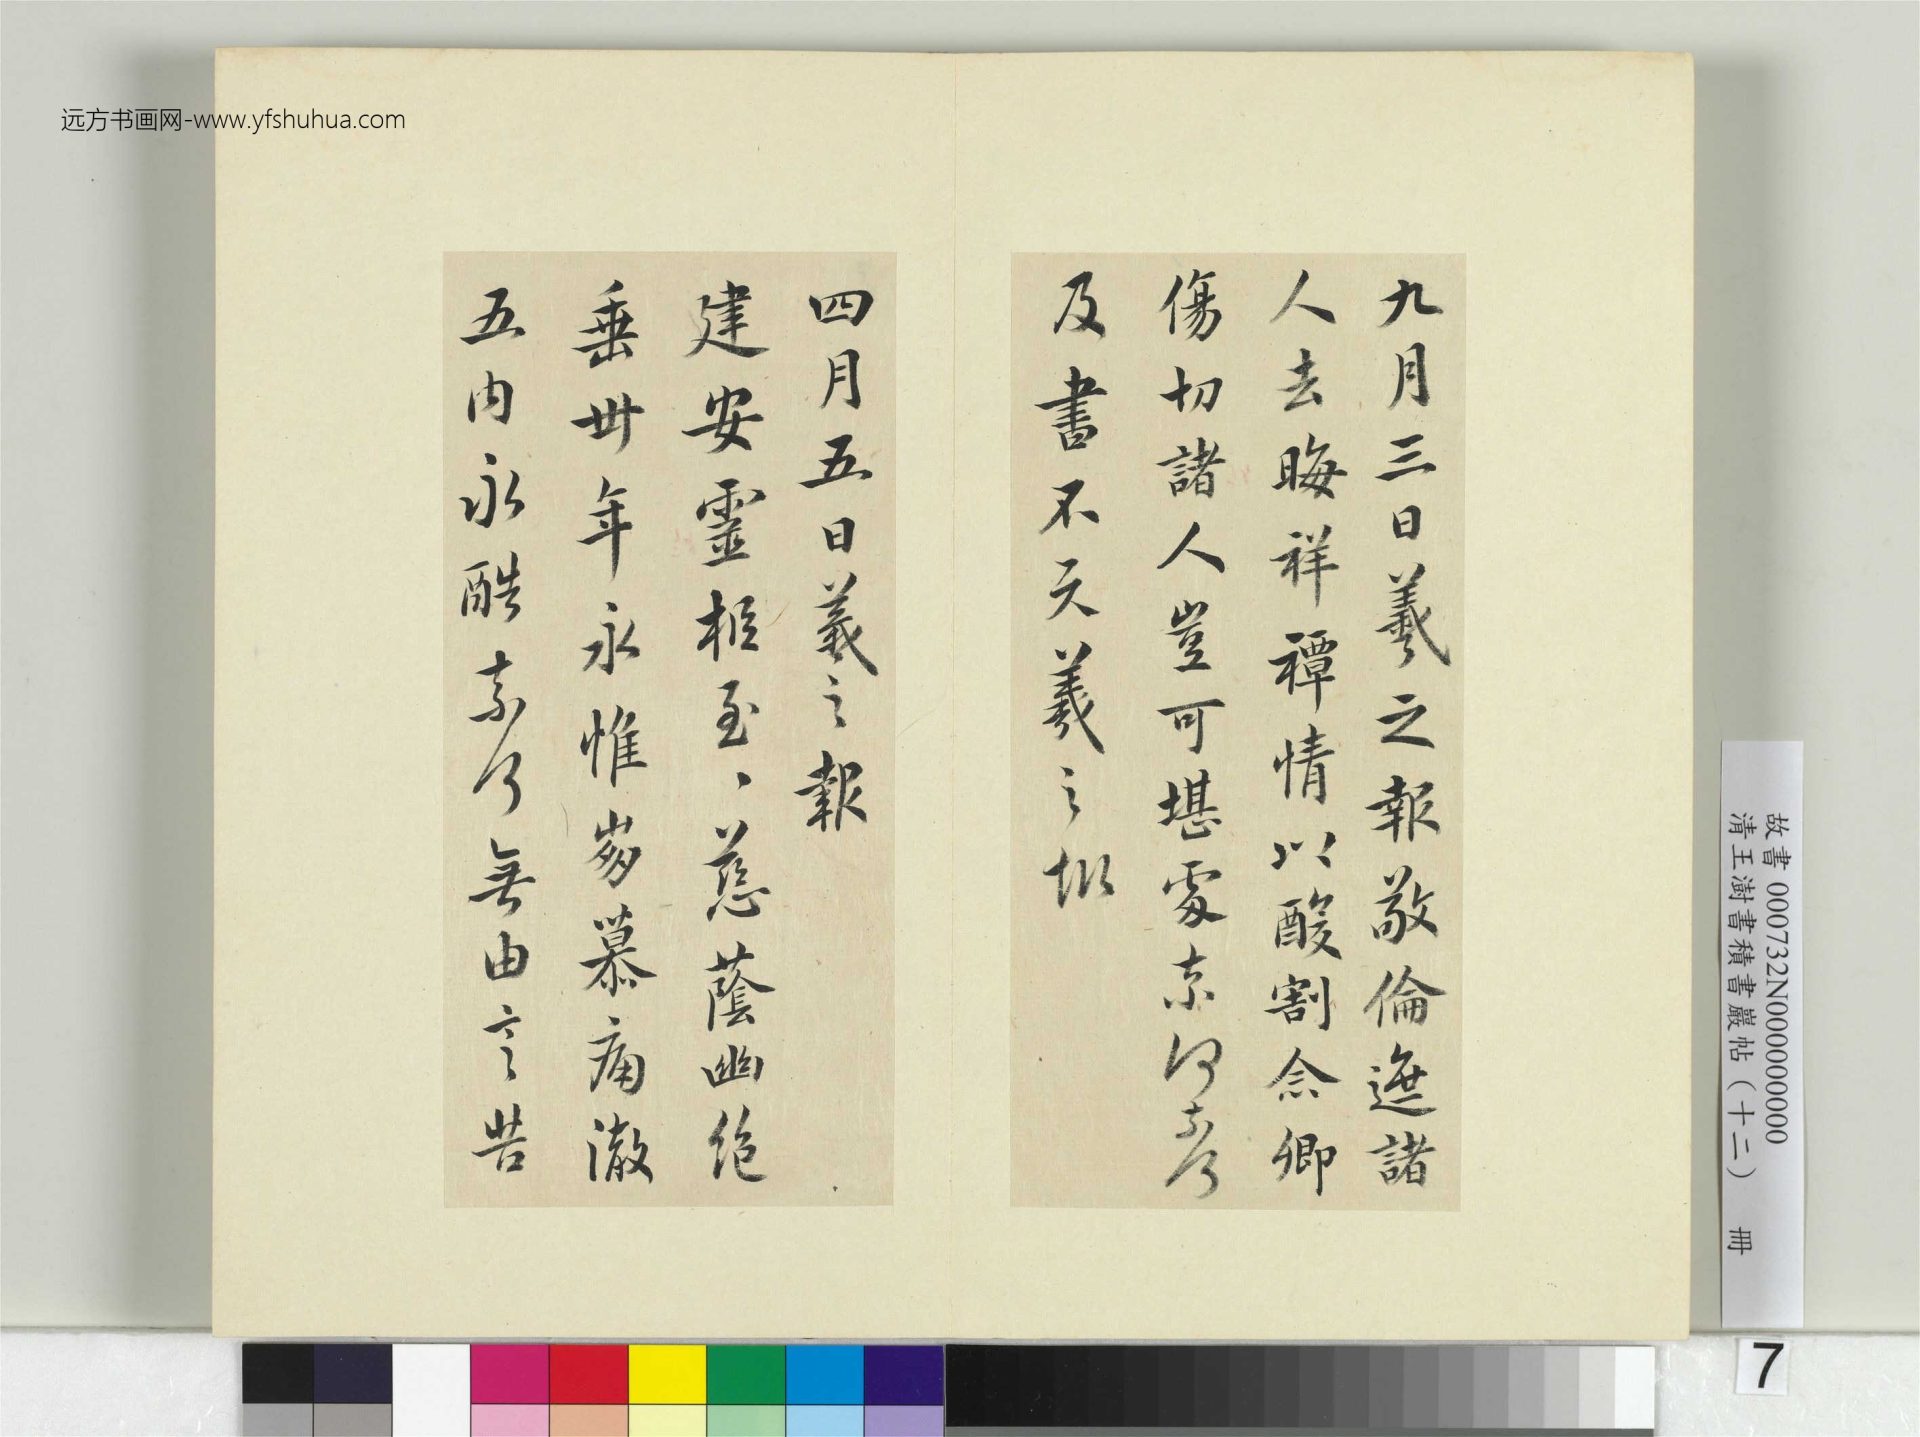 远方书画网-www.yfshuhua.com
九月三日羲之報敬倫遮諸
人去晦祥禫情以酸割念卿
傷切諸人豈可堪處奈何奈何
及書不 羲之
四月五日羲之報
建安靈柩至、慈蔭幽絕
垂卅年永惟崩慕痛徹
五內永酷奈何無由言告
故書 000732N000000000
清王澍書積書巖帖(十二) 冊
7